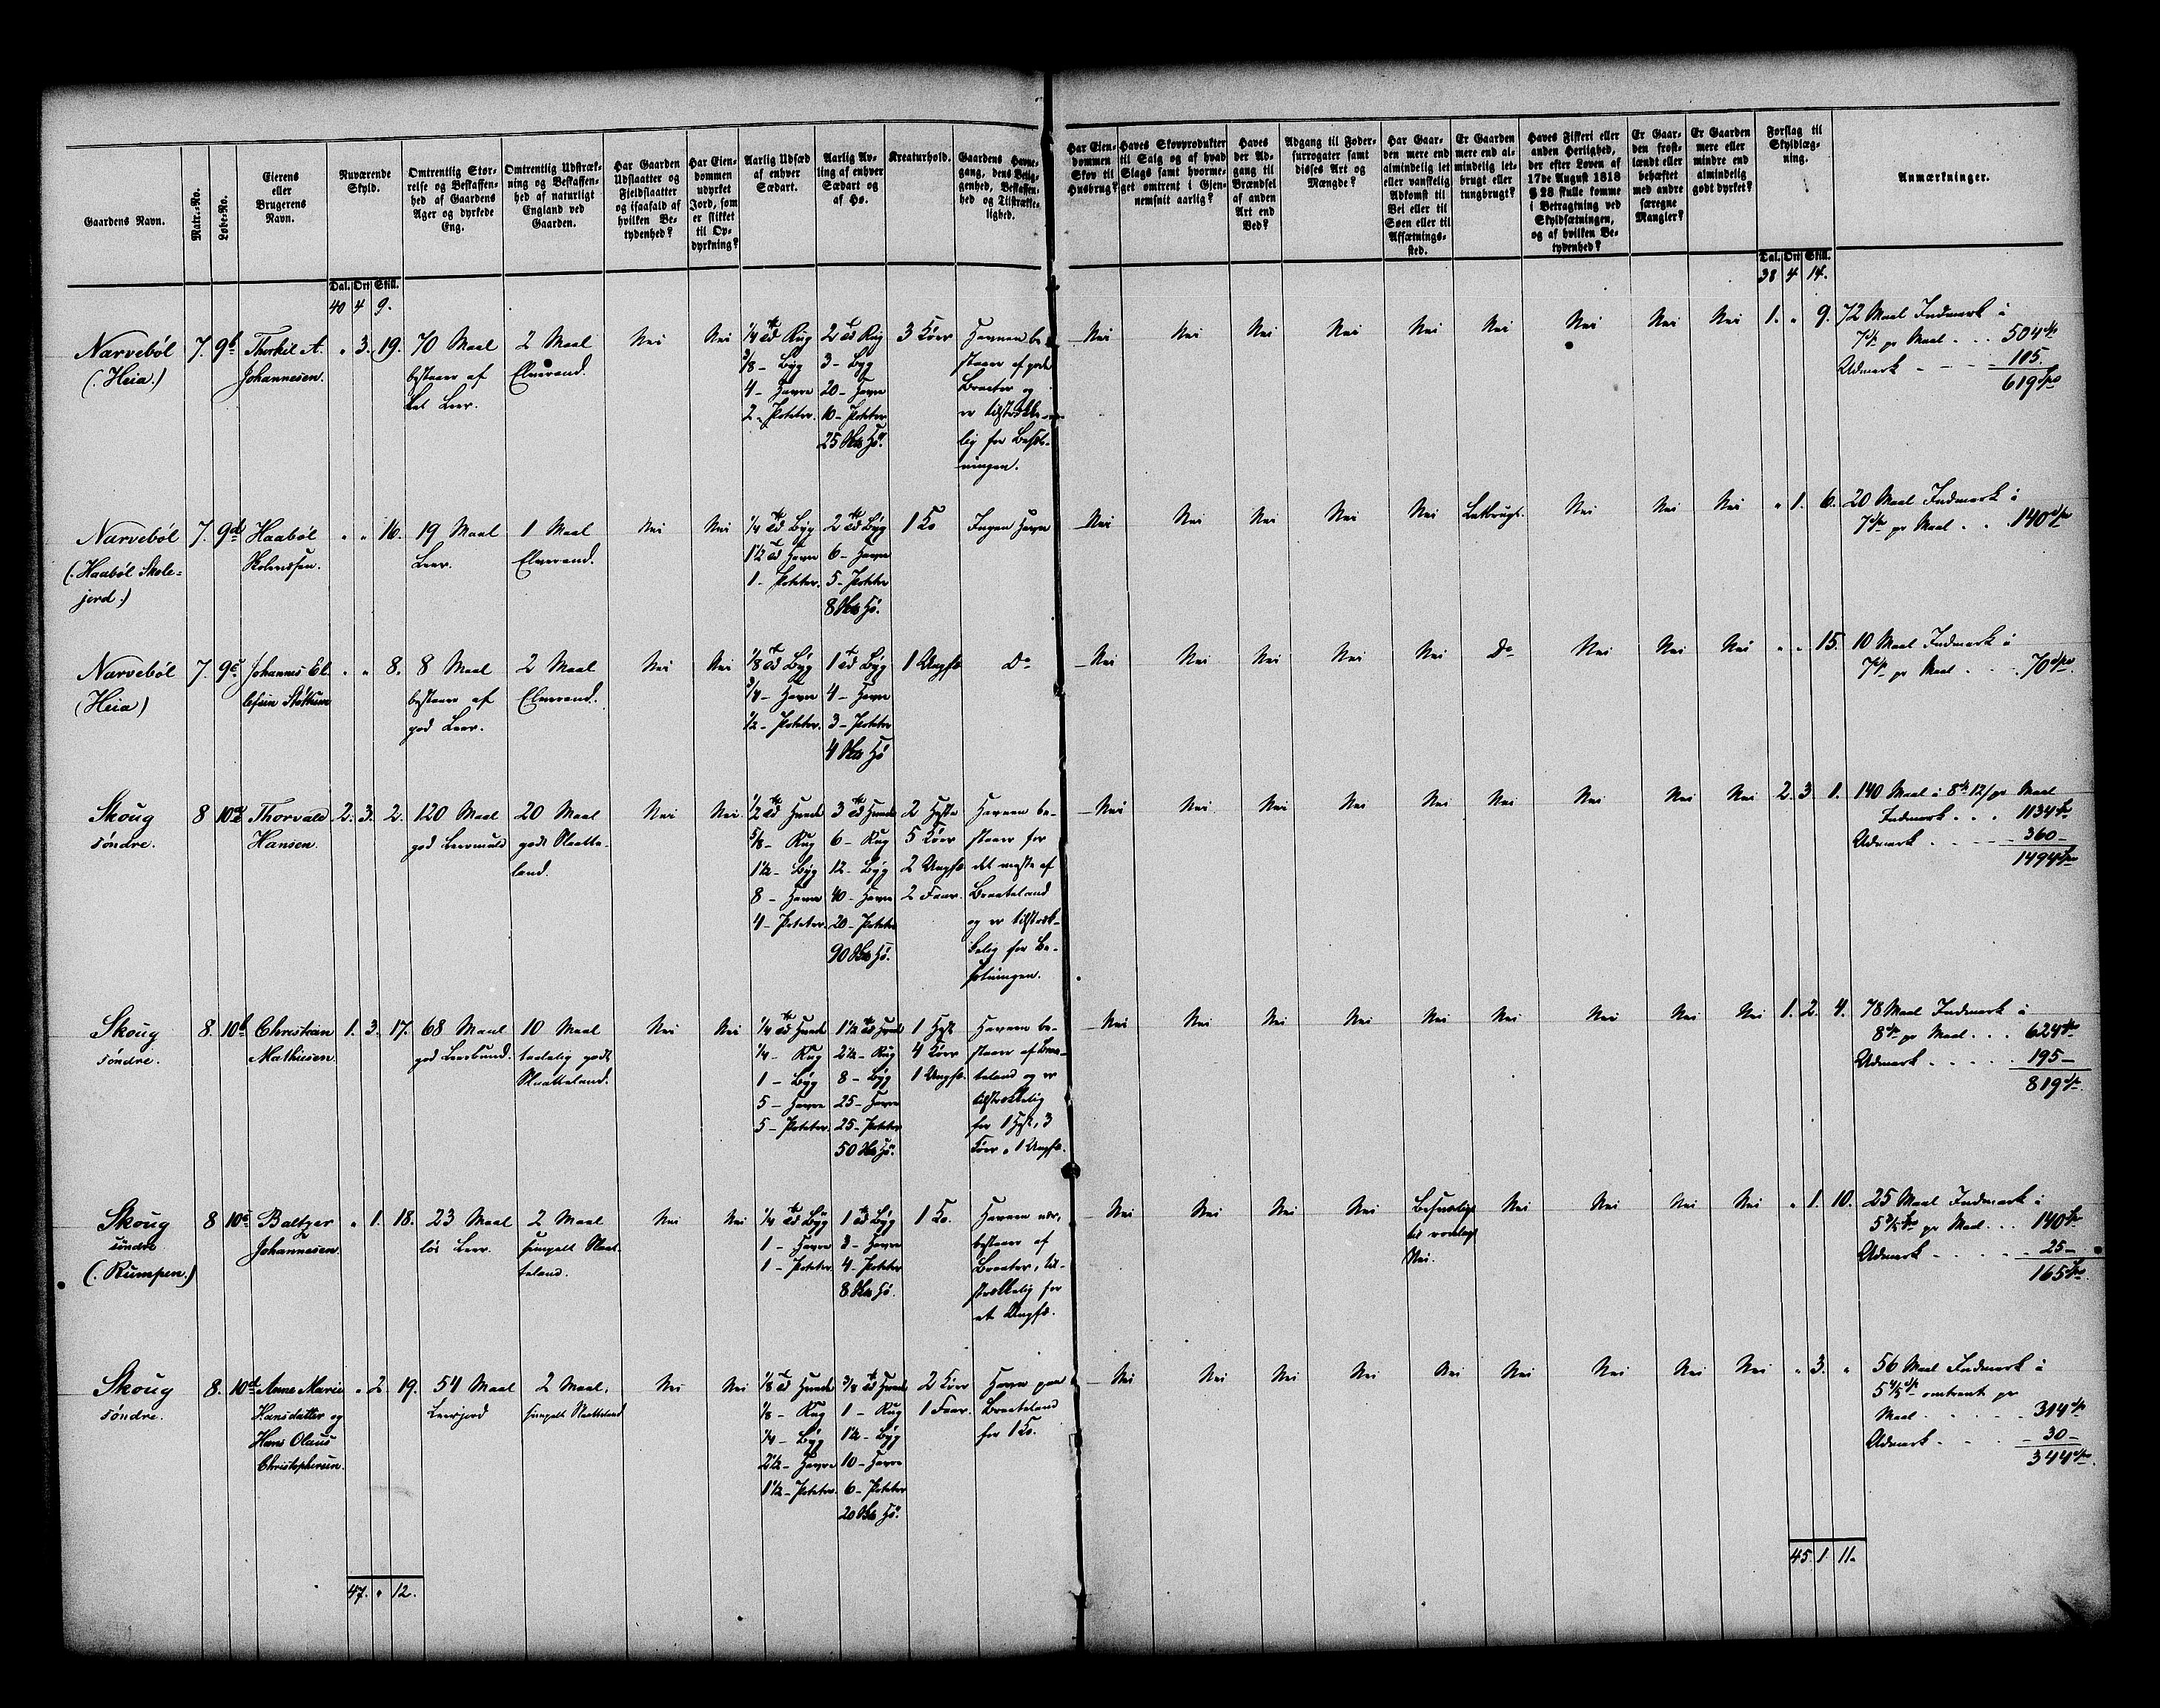 Gaardens Navn.
Matr.-No.
Løbe-No.
Eierens
eller
Brugerens
Navn.
Nuværende
Skyld.
Omtrentlig Stør-
relse og Beskaffen-
hed af Gaardens
Ager og dyrkede
Eng.
Omtrentlig Udstræk-
ning og Beskaffen-
hed af naturligt
England ved
Gaarden.
Har Gaarden
Udslaatter og
Fjeldslaatter
og isaafald af
hvilken Be-
tydenhed?
Har Eien-
dommen
udyrket
Jord, som
er skikket
til Op-
dyrkning?
Aarlig Udsæd
af enhver
Sædart.
Aarlig Av-
ling af enhver
Sædart og
af Hø.
Kreaturhold.
Gaardens Havne-
gang, dens Belig-
genhed, Beskaffen-
hed og Tilstrække-
lighed.
Har Eien-
dommen
Skov til
Husbrug?
Haves Skovprodukter
til Salg og af hvad
Slags samt hvorme-
get omtrent i Gjen-
nemsnit aarlig?
Haves
der Ad-
gang til
Brændsel
af anden
Art end
Ved?
Adgang til Foder-
surrogater samt
disses Art og
Mængde?
Har Gaar-
den mere end
almindelig let
eller vanskelig
Adkomst til
Vei eller til
Søen eller til
Afsætnings-
sted.
Er Gaarden
mere end al-
mindelig let-
brugt eller
tungbrugt?
Haves Fiskeri eller
anden Herlighed,
der efter Loven af
17de August 1818
§ 28 skulle komme
i Betragtning ved
Skyldsætningen,
og af hvilken Be-
tydenhed?
Er Gaar-
den frost-
lændt eller
behæftet
med andre
særegne
Mangler?
Er Gaarden
mere eller
mindre end
almindelig
godt dyrket?
Forslag til
Skyldlæg-
ning.
Anmærkninger.
Dal. Ort Skill.
40 4 9.
Dal. Ort Skill.
38 4 14.
Narvebøl
(: Heia.)
7. 9b
Thorkil A.
Johannesen.
" 3. 19.
70 Maal
bestaaer af
let Leer.
2 Maal
Elverand.
Nei
Nei
1/4 Td Rug
3/8 - Byg
4 - Havre
2 - Poteter.
2 Td Rug
3 - Byg
20 - Havre
10 - Poteter
25 Hø.
3 Køer
Havnen be-
staaer af gode
Braater og
er tilstrække-
lig for Besæt-
ningen.
Nei
Nei
Nei
Nei
Nei
Nei
Nei
Nei
Nei
1. " 9.
72 Maal Indmark à
7 pr Maal . . . 504
Udmark - - - 115.
619
Narvebøl
(: Haabøl Skole=
jord.)
7. 9d
Haabøl
" " 16.
19 Maal
Leer.
1 Maal
Elverand.
Nei
Nei
1/4 Td Byg
1 1/2 Td Havre
1 - Poteter.
2 Td Byg
6 - Havre
5 - Poteter
8 Hø.
1 Ko
Ingen Havn
Nei
Nei
Nei
Nei
Nei
Letbrugt.
Nei
Nei
Nei
" 1. 6.
20 Maal Indmark à
7 pr Maal . . 140
Narvebøl
(Heia)
7. 9c
Johannes El.
" " 8.
8 Maal
bestaaer af
god Leer.
2 Maal
Elverand.
Nei
Nei
1/8 Td Byg
3/4 - Havre
1/2 - Poteter.
1 Td Byg
4 - Havre
3 - Poteter
4 Hø
1 Ungfæ
Do
Nei
Nei
Nei
Nei
Nei
Do
Nei
Nei
Nei
" " 15.
10 Maal Indmark à
7 pr Maal . . . . 70
Skoug
søndre.
8 10a
Thorvald
Hansen.
2. 3. 2.
120 Maal
god Leermuld
20 Maal
godt Slaatte-
land.
Nei
Nei
1/2 Td Hvede
5/8 - Rug
1 1/2 - Byg
8 - Havre
4 - Poteter.
3 Td Hvede
6 - Rug
12 - Byg
40 - Havre
20 - Poteter
90 Hø.
2 Heste
5 Køer
2 Ungfæ
2 Faar.
Havnen be-
staaer for
det meste af
Braateland
og er tilstræk-
kelig for Be-
sætningen.
Nei
Nei
Nei
Nei
Nei
Nei
Nei
Nei
Nei
2. 3. 1.
140 Maal à 8 12/ pr Maal
Indmark . . . 1134
Udmark . . . . 360 -
1494
Skoug
søndre.
8. 10b
Christian
Mathiesen
1. 3. 17.
68 Maal
god Leerbund.
10 Maal
taalelig godt
Slaatteland.
Nei
Nei
1/4 Td Hvede
1/4 - Rug
1 - Byg
5 - Havre
5 - Poteter.
1 1/2 Td Hvede
2 1/2 - Rug
8 - Byg
25 - Havre
25 - Poteter
50 Hø.
1 Hest
4 Køer
1 Ungfæ.
Havnen be-
staaer af Braa-
teland og er
tilstrækkelig
for 1 Hest, 3
Køer, 1 Ungfæ.
Nei
Nei
Nei
Nei
Nei
Nei
Nei
Nei
Nei
1. 2. 4.
78 Maal Indmark à
8 pr Maal . . . 624
Udmark . . . . . 195 -
819
Skoug
søndre
(: Rumpen.)
8 10c
Baltzer
Johannesen.
" 1. 18.
23 Maal
løs Leer.
2 Maal
simpelt Slaat-
teland.
Nei
Nei
1/4 Td Byg
1 - Havre
1 - Poteter
1 Td Byg
3 - Havre
4 - Poteter
8 Hø.
1 Ko.
Havnen nær,
bestaaer af
Braater, til-
strækkelig for
et Ungfæ.
Nei
Nei
Nei
Nei
Besværligt
til
Vei.
Nei
Nei
Nei
Nei
" 1. 10.
25 Maal Indmark à
5 3/5 pr Maal . . . 140
Udmark . . . . . 25 -
165
Skoug
søndre.
8. 10d
Anne Marie
Hansdatter og
Hans Olaus
Christophersen.
" 2. 19.
54 Maal
Leerjord
2 Maal,
simpelt Slaatteland
Nei
Nei
1/8 Td Hvede
1/8 - Rug
1/4 - Byg
2 1/2 - Havre
1 1/2 - Poteter.
3/8 Td Hvede
1 - Rug
1 1/2 - Byg
10 - Havre
6 - Poteter
20 Hø.
2 Køer
1 Faar.
Havn paa
Braateland
for 1 Ko.
Nei
Nei
Nei
Nei
Nei
Nei
Nei
Nei
Nei
" 3. "
56 Maal Indmark à
5 4/5 omtrent pr
Maal . . . . . 314
Udmark . . . . 30 -
344
47. " 12.
45. 1 11.